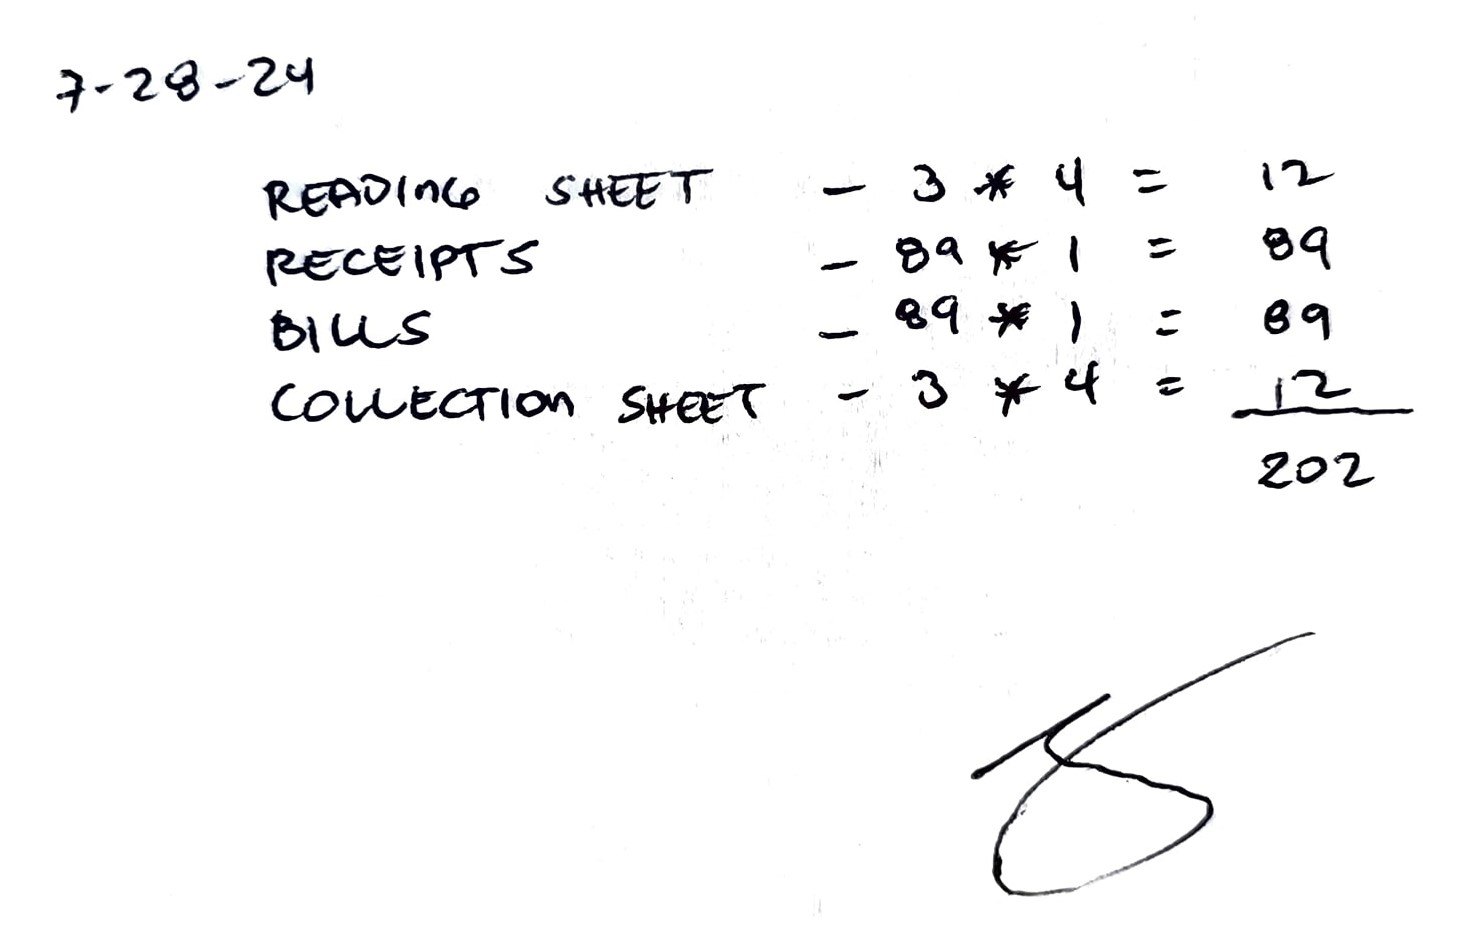 7-28-24
READING SHEET - 3 * 4 = 12
RECEIPTS - 89 * 1 = 89
BILLS - 89 * 1 = 89
COLLECTION SHEET - 3 * 4 = 12
202